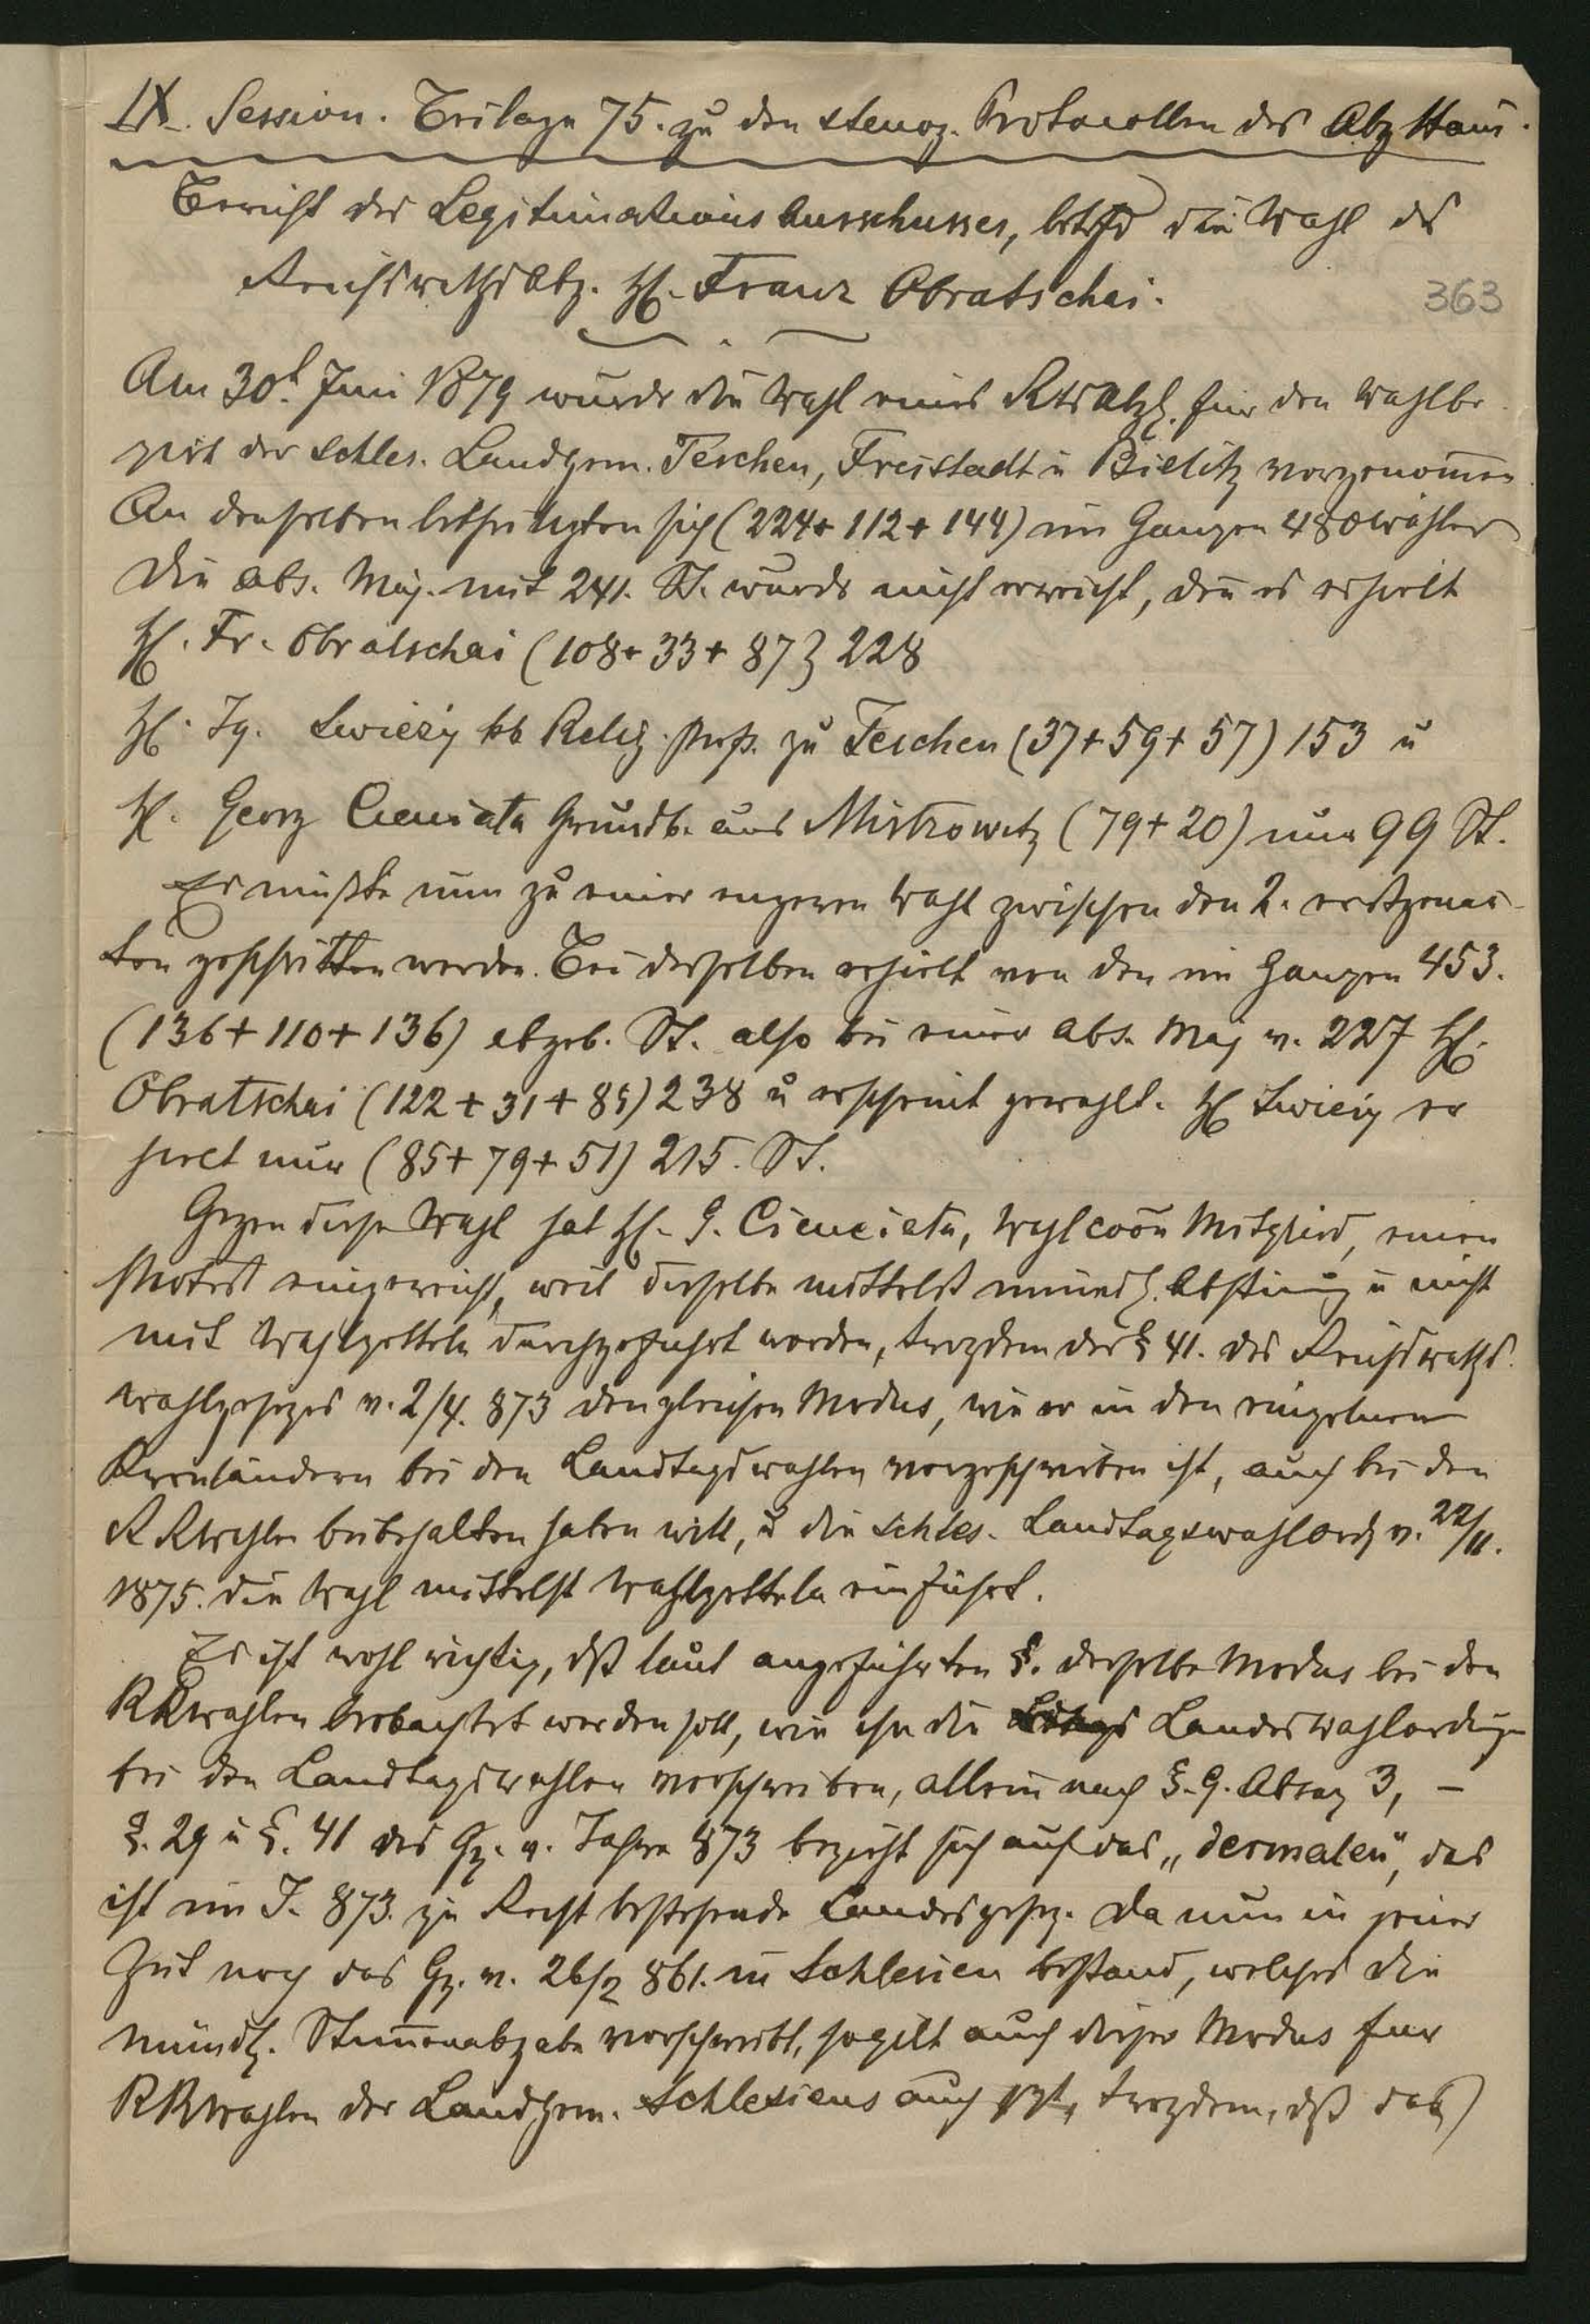 IX. Session. Beilage 75. zu den stenog. Protocollen des Abg Haus.
Bericht des Legitimations Ausschusses, betrfd die Wahl des
ReichsrathsAbg. H. Franz Obratschai.
363
Am 30t. Juni 1879 wurde die Wahl eines RtsAbg. für den Wahlbe-
zirk der schles. Landgem. Teschen, Freistadt u Bielitz vorgenom̄en
An denselben betheiligten sich (224+112+144) im Ganzen 480 Wähler
Die abs. Maj. mit 241. St. wurde nicht erreicht, den̄ es erhielt
H. Fr. Obratschai (108+33+87) 228
H. Ig. Swieży kk Relig. Prof. zu Teschen (37+59+57) 153 u
H. Georg Cienciala Grundb. aus Mistrowitz (79+20) nur 99 St.
Es mußte nun zu einer engeren Wahl zwischen den 2. erstgenan̄-
ten geschritten werden. Bei derselben erhielt von den im Ganzen 453.
(136+110+136) abgeb. St. also bei einer abs. Maj v. 227 H.
Obratschai (122+31+85) 238 u erscheint gewählt. H Swieży er
hielt nur (85+79+51) 215. St.
Gegen diese Wahl hat H. G. Cienciala, Wahlcoōn Mitglied, einen
Protest eingereicht, weil dieselbe mittelst mündl. Abstim̄g u nicht
mit Wahlzetteln durchgeführt worden, trozdem der § 41. des Reichsraths-
wahlgesezes v. 2/4. 873 den gleichen Modus, wie er in den einzelnen
Kronländern bei den Landtagswahlen vorgeschrieben ist, auch bei den
RRwahlen beibehalten haben will, u die schles. Landtagswahlordg v. 22/11.
1875. die Wahl mittelst Wahlzetteln einführt.
Es ist wohl richtig, dß laut angeführten §. derselbe Modus bei den
RRwahlen beobachtet werden soll, wie ihn die Landeswahlordngen
bei den Landtagswahlen vorschreiben, allein nach §. 9. Absaz 3, –
§. 29 u §. 41 des Gz. v. Jahre 873 bezieht sich auf das „dermalen", das
ist im J. 873. zu Recht bestehende Landesgesez. Da nun in jener
Zeit noch das Gz. v. 26/2 861. in Schlesien bestand, welches die
mündl. Stim̄enabgabe vorschreibt, so gilt auch dieser Modus fuer
RRwahlen der Landgem. Schlesiens auch jezt, trozdem, dß das